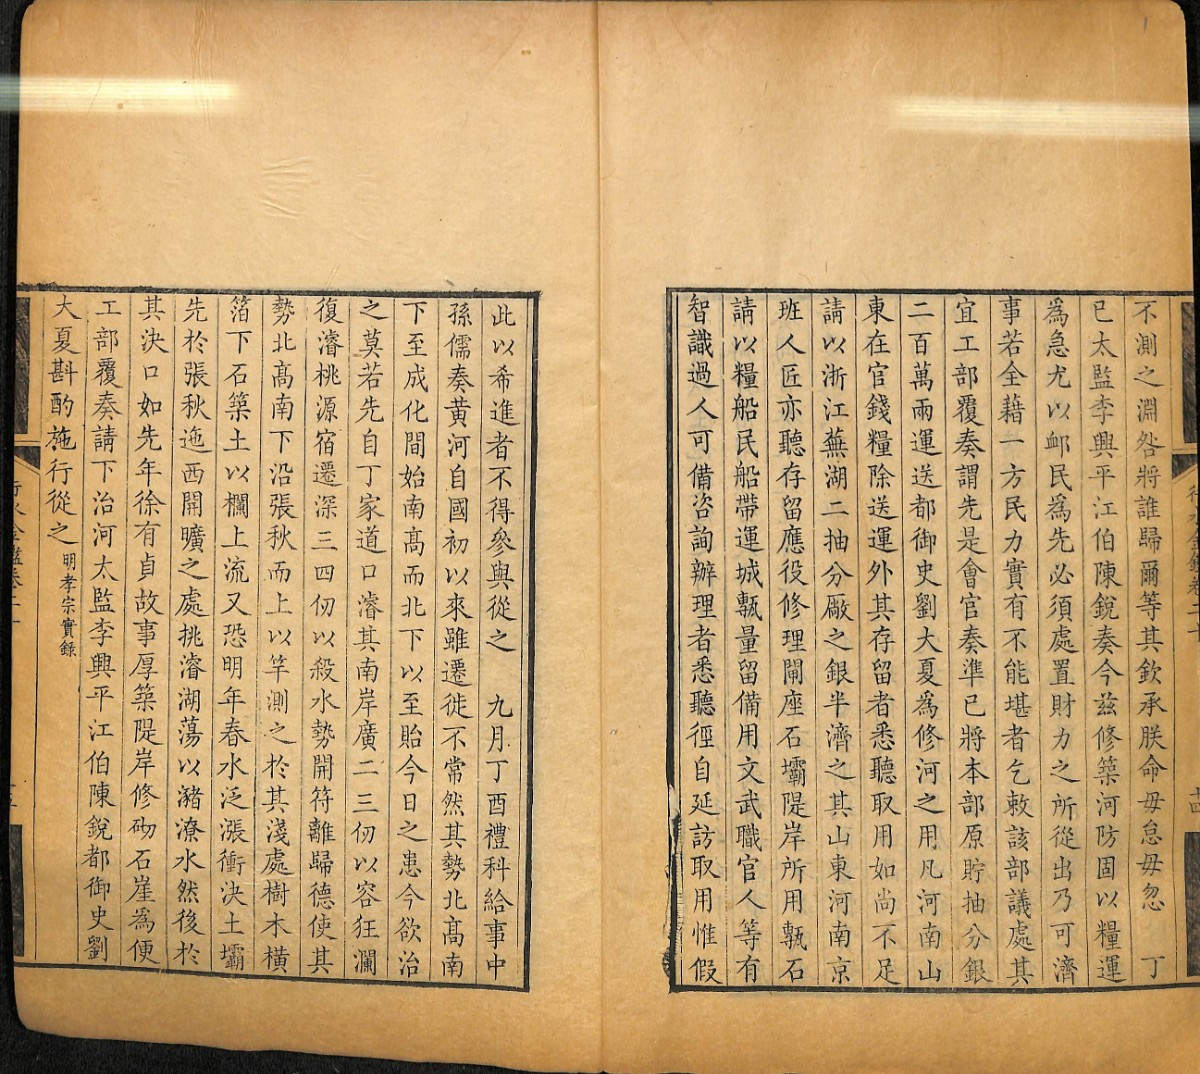 不測之淵咎將誰歸爾等其欽承朕命毋怠毋忽　丁
已太監李興平江伯陳銳奏今茲修築河防固以糧運
為急尤以䘏民為先必須處置財力之所從出乃可濟
事若全藉一方民力實有不能堪者乞敕該部議處其
宜工部覆奏謂先是會官奏準已將本部原貯抽分銀
二百萬兩運送都御史劉大夏為修河之用凡河南山
東在官錢糧除送運外其存留者悉聽取用如尚不足
請以浙江蕪湖二抽分厰之銀半濟之其山東河南京
班人匠亦聽存留應役修理閘座石壩隄岸所用甎石
請以糧船民船帶運城甎量留備用文武職官人等有
智識過人可備咨詢辦理者悉聽徑自延訪取用惟假
此以希進者不得參與從之　九月丁酉禮科給事中
孫儒奏黄河自國初以來雖遷徙不常然其勢北高南
下至成化間始南高而北下以至貽今日之患今欲治
之莫若先自丁家道口濬其南岸廣二三仞以容狂瀾
復濬桃源宿遷深三四仞以殺水勢開符離歸德使其
勢北高南下沿張秋而上以竿測之於其淺處樹木橫
箔下石築土以欄上流又恐明年春水泛漲衝決土壩
先於張秋迤西開曠之處挑濬湖蕩以瀦潦水然後於
其決口如先年徐有貞故事厚築隄岸修砌石崖為便
工部覆奏請下治河太監李興平江伯陳銳都御史劉
大夏斟酌施行從之 明孝宗實錄